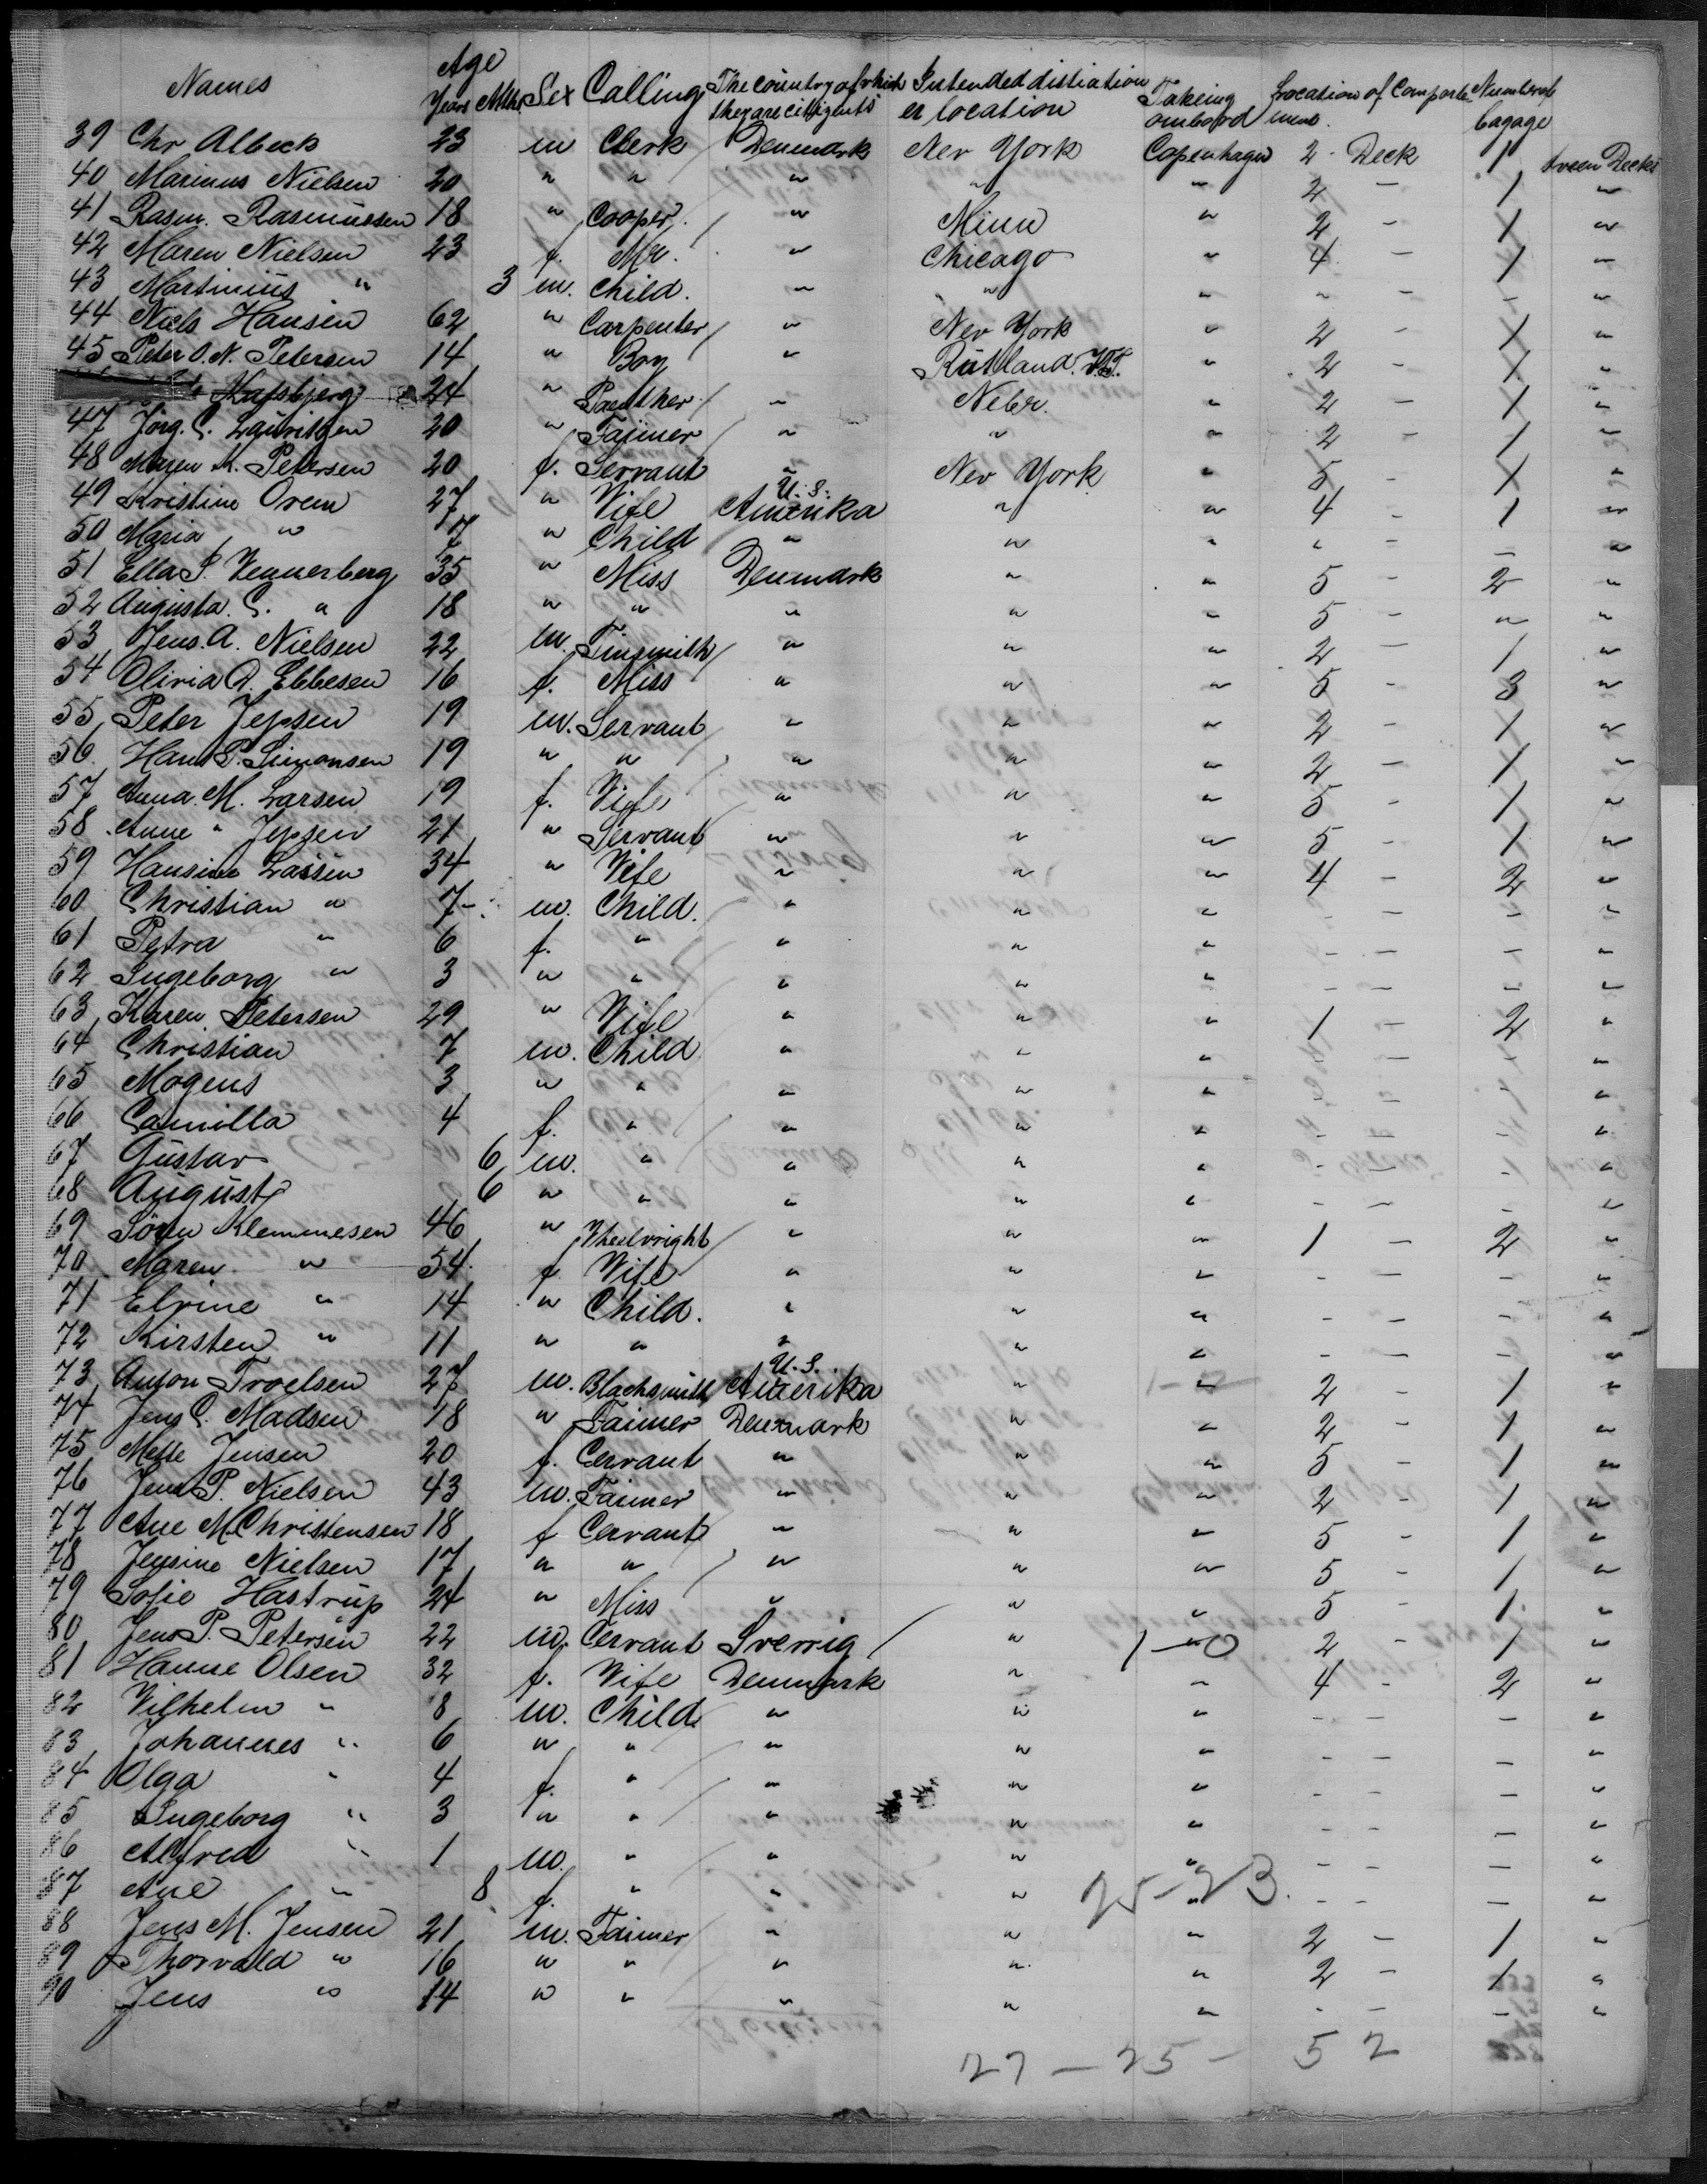 Names Age Years Mths Sex Calling The country of which they are citizents Intended distiation er location Takeing ombord Location of Comparte ment. Number of bagage
39 Chr Albeck 23 m Clerk Denmark Nev York Copenhagen 2 - Deck 1 tveen Decks
40 Marinus Nielsen 20 " " " " " 2 - 1 "
41 Rasm. Rasmussen 18 " Cooper " Minn " 2 - 1 "
42 Maren Nielsen 23 f. Mr. " Chicago " 4 - 1 "
43 Martinius " 3 m. Child. " " " - - - "
44 Niels Hansen 62 " Carpenter " Nev York " 2 - 1 "
45 Peter O. N. Petersen 14 " Boy " Rutland. " 2 - 1 "
24 " " Nebr. " 2 - 1 "
47 Jörg. C. Lauritzen 20 " Faimer " " " 2 - 1 "
48 Maren K. Petersen 20 f. Servant " Nev York " 5 - 1 "
49 Kristine Orem 27 " Vife U. S. Amerika " " 4 - 1 "
50 Maria " " Child " " " " - - "
51 Ella S. Vennerberg 35 " Miss Denmark " " 5 - 2 "
52 Augusta C. " 18 " " " " " 5 - " "
53 Jens. A. Nielsen 22 m. Tinsmith " " " 2 - 1 "
54 Olivia A. Ebbesen 16 f. Miss " " " 5 - 3 "
55 Peter Jepsen 19 m. Servant " " " 2 - 1 "
56 Hans P. Simonsen 19 " " " " " 2 - 1 "
57 Anna M. Larsen 19 f. Vife " " " 5 - 1 "
58 Anne " Jepsen 21 " Servant " " " 5 - 1 "
59 Hansine Lassen 34 " Vife " " " 4 - 2 "
60 Christian " 7 m. Child. " " " - - - "
61 Petra " 6 f. " " " " - - - "
62 Ingeborg " 3 " " " " " - - - "
63 Karen Petersen 29 " Vife " " " 1 - 2 "
64 Christian 7 m. Child " " " - - - "
65 Mogens 3 " " " " " - - - "
66 Camilla 4 f. " " " " - - - "
67 Gustav 6 m. " " " " - - - "
68 August 6 " " " " " - - - "
69 Sören Klemmesen 46 " Vheelvright " " " 1 - 2 "
70 Maren " 54 f. Vife " " " - - - "
71 Elvine " 14 " Child. " " " - - - "
72 Kirsten " 11 " " " " " - - - "
73 Anton Troelsen 27 m. Blachsmith U. S. Amerika " " 2 - 1 "
74 Jens C. Madsen 18 " Faimer Denmark " " 2 - 1 "
75 Mette Jensen 20 f. Cervant " " " 5 - 1 "
76 Jens P. Nielsen 43 m. Faimer " " " 2 - 1 "
77 Ane M. Christensen 18 f Cervant " " " 5 - 1 "
78 Jensine Nielsen 17 " " " " " 5 - 1 "
79 Sofie Hastrup 24 " Miss " " " 5 - 1 "
80 Jens P. Petersen 22 m. Cervant Sverrig " 1 - 0 2 - 1 "
81 Hanne Olsen 32 f. Vife Denmark " " 4 - 2 "
82 Vilhelm " 8 m. Child " " " - - - "
83 Johannes " 6 " " " " " - - - "
84 Olga " 4 f. " " " " - - - "
85 Ingeborg " 3 " " " " " - - - "
86 Alfred " 1 m. " " " " - - - "
87 Ane " 8 f. " " " 25-23. " - - - "
88 Jens M. Jensen 21 m. Faimer " " " 2 - 1 "
89 Thorvald " 16 " " " " " 2 - 1 "
90 Jens " 14 " " " " " - - - "
27 - 25 - 52